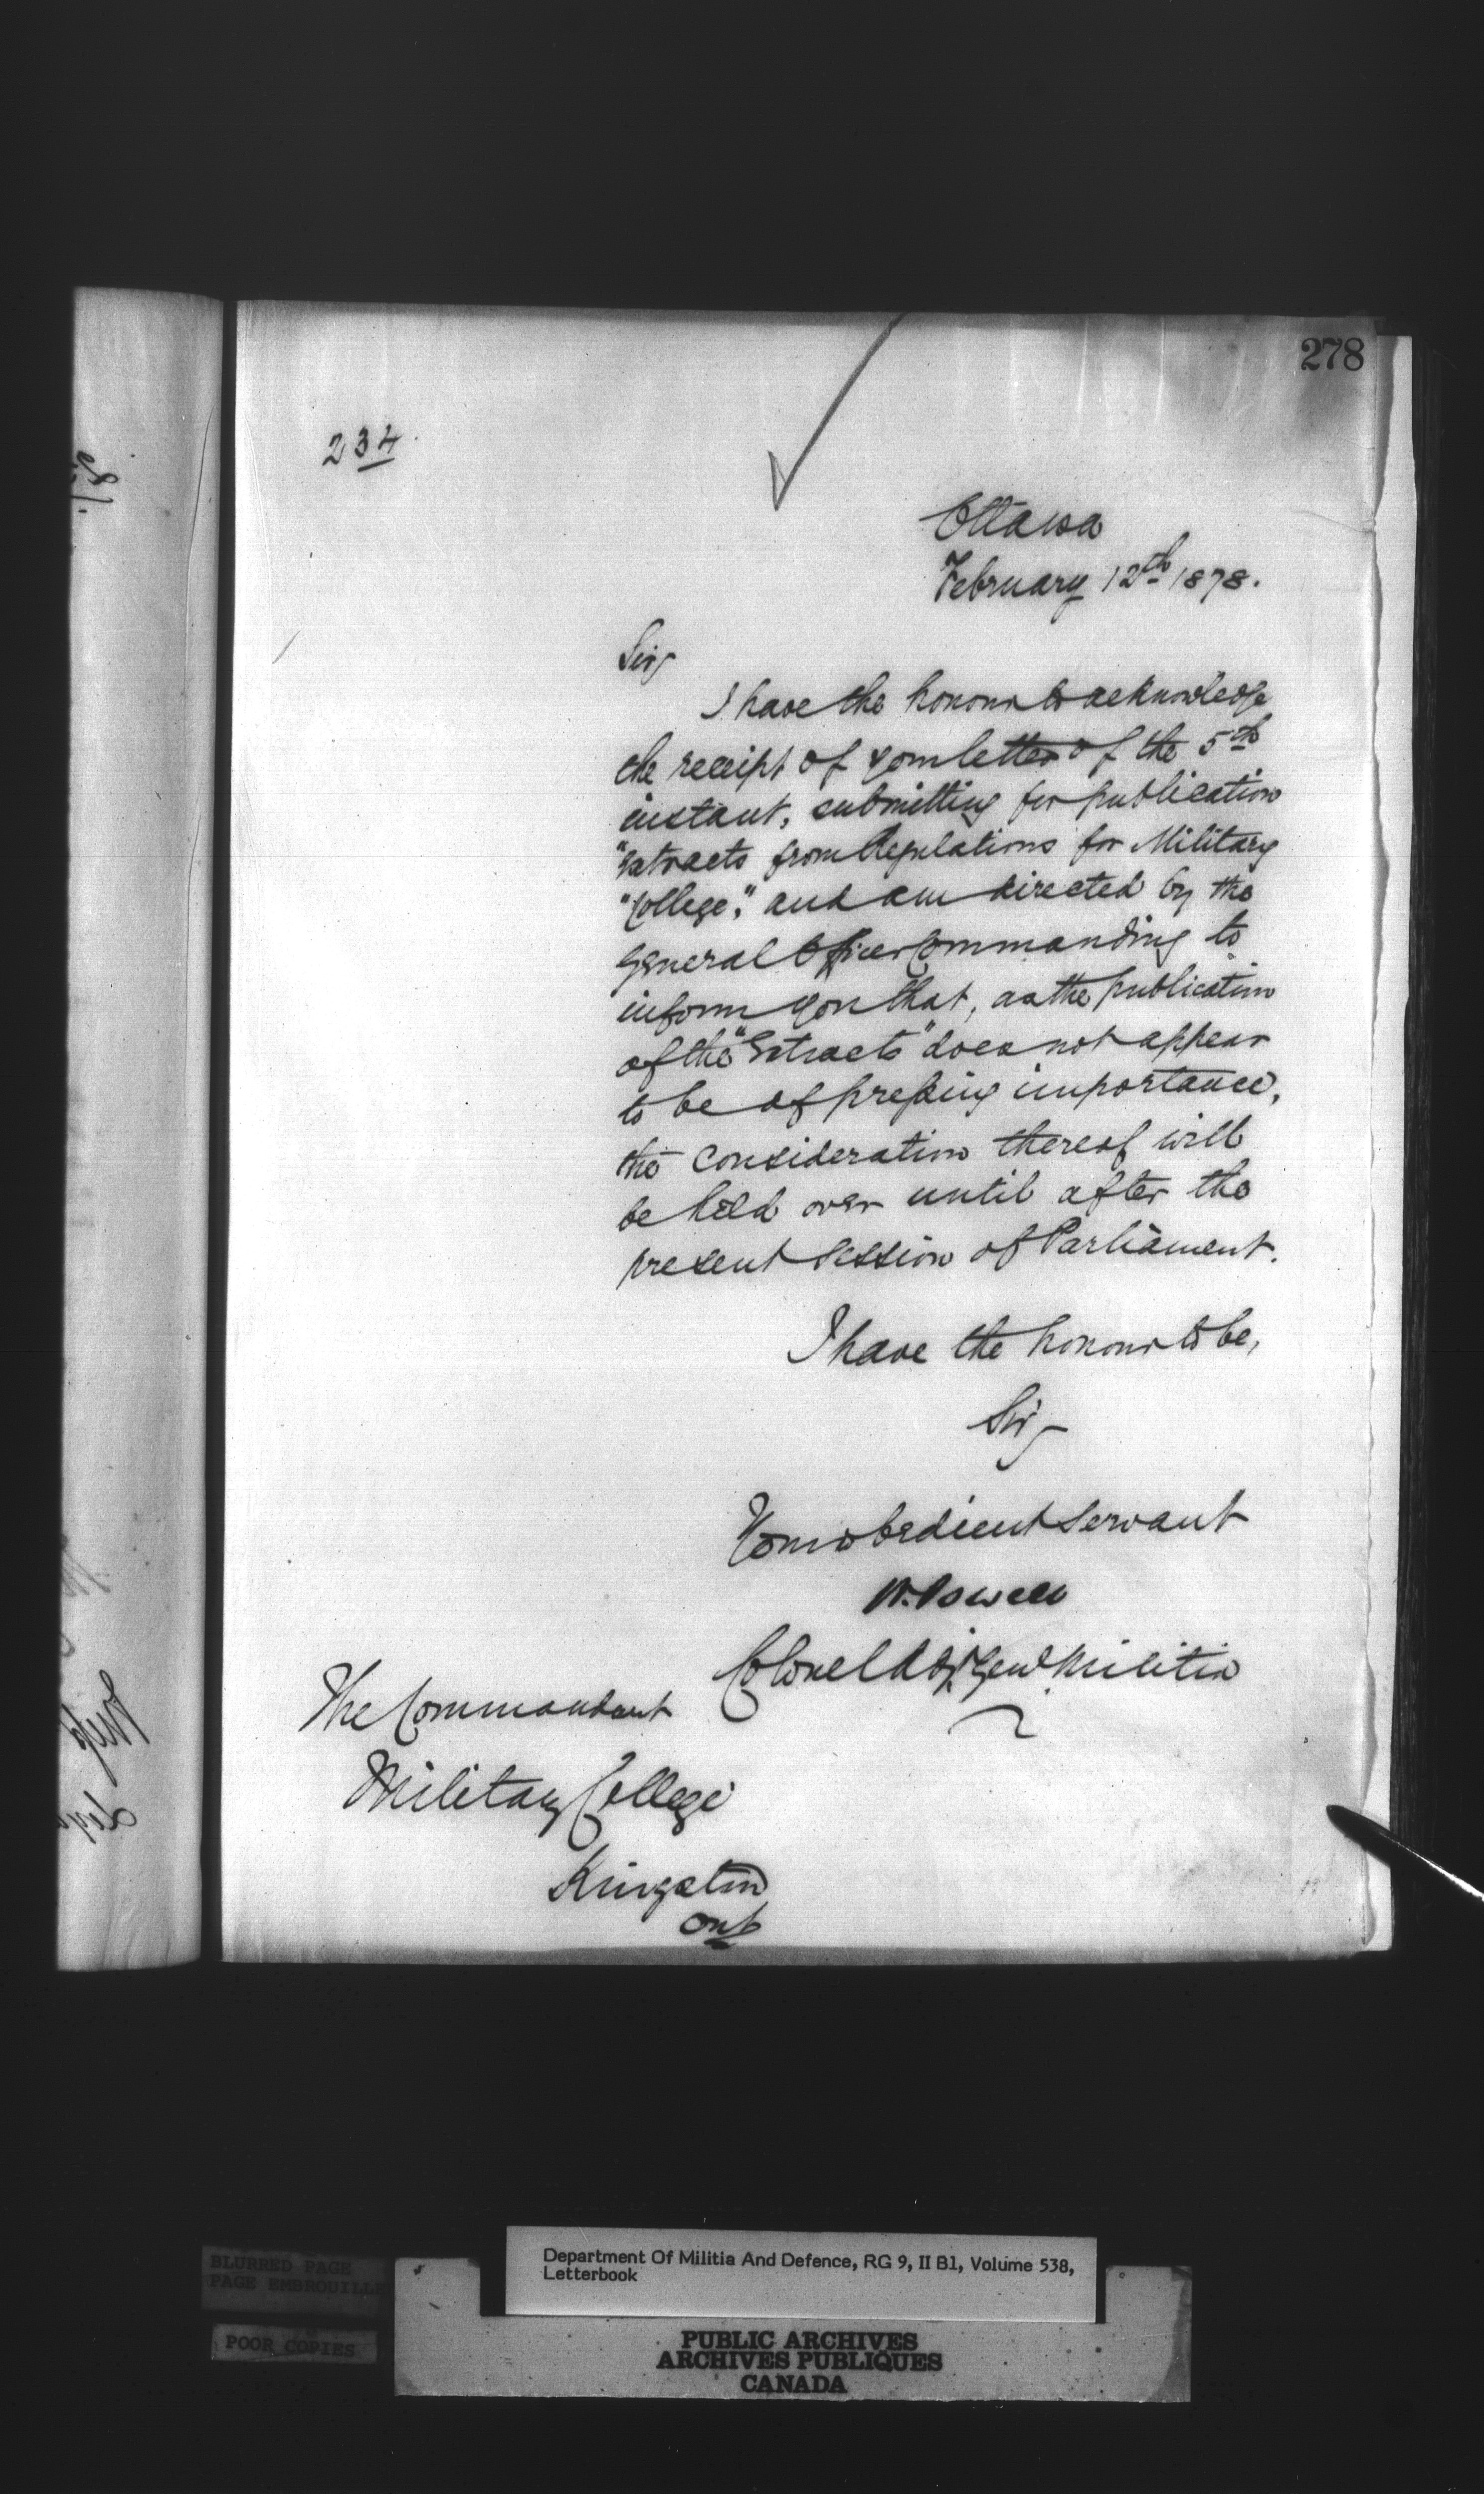 278
234
Ottawa
February 12th 1878.
Sir,
I have the honour to acknowledge
the receipt of your letter of the 5th
instant, submitting for publication
"Extracts from Regulations for Military
"College," and am directed by the
General Officer Commanding to
inform you that, as the publication
of the "Extracts" does not appear
to be of pressing importance,
the consideration thereof will
be held over until after the
present Session of Parliament.
I have the honour to be,
Sir,
Your obedient Servant
W. Powell
Colonel Adjt Genl Militia
The Commandant
Military College
Kingston
Ont
BLURRED PAGE
PAGE EMBROUILLE
POOR COPIES
Department Of Militia And Defence, RG 9, II B1, Volume 538,
Letterbook
PUBLIC ARCHIVES
ARCHIVES PUBLIQUES
CANADA